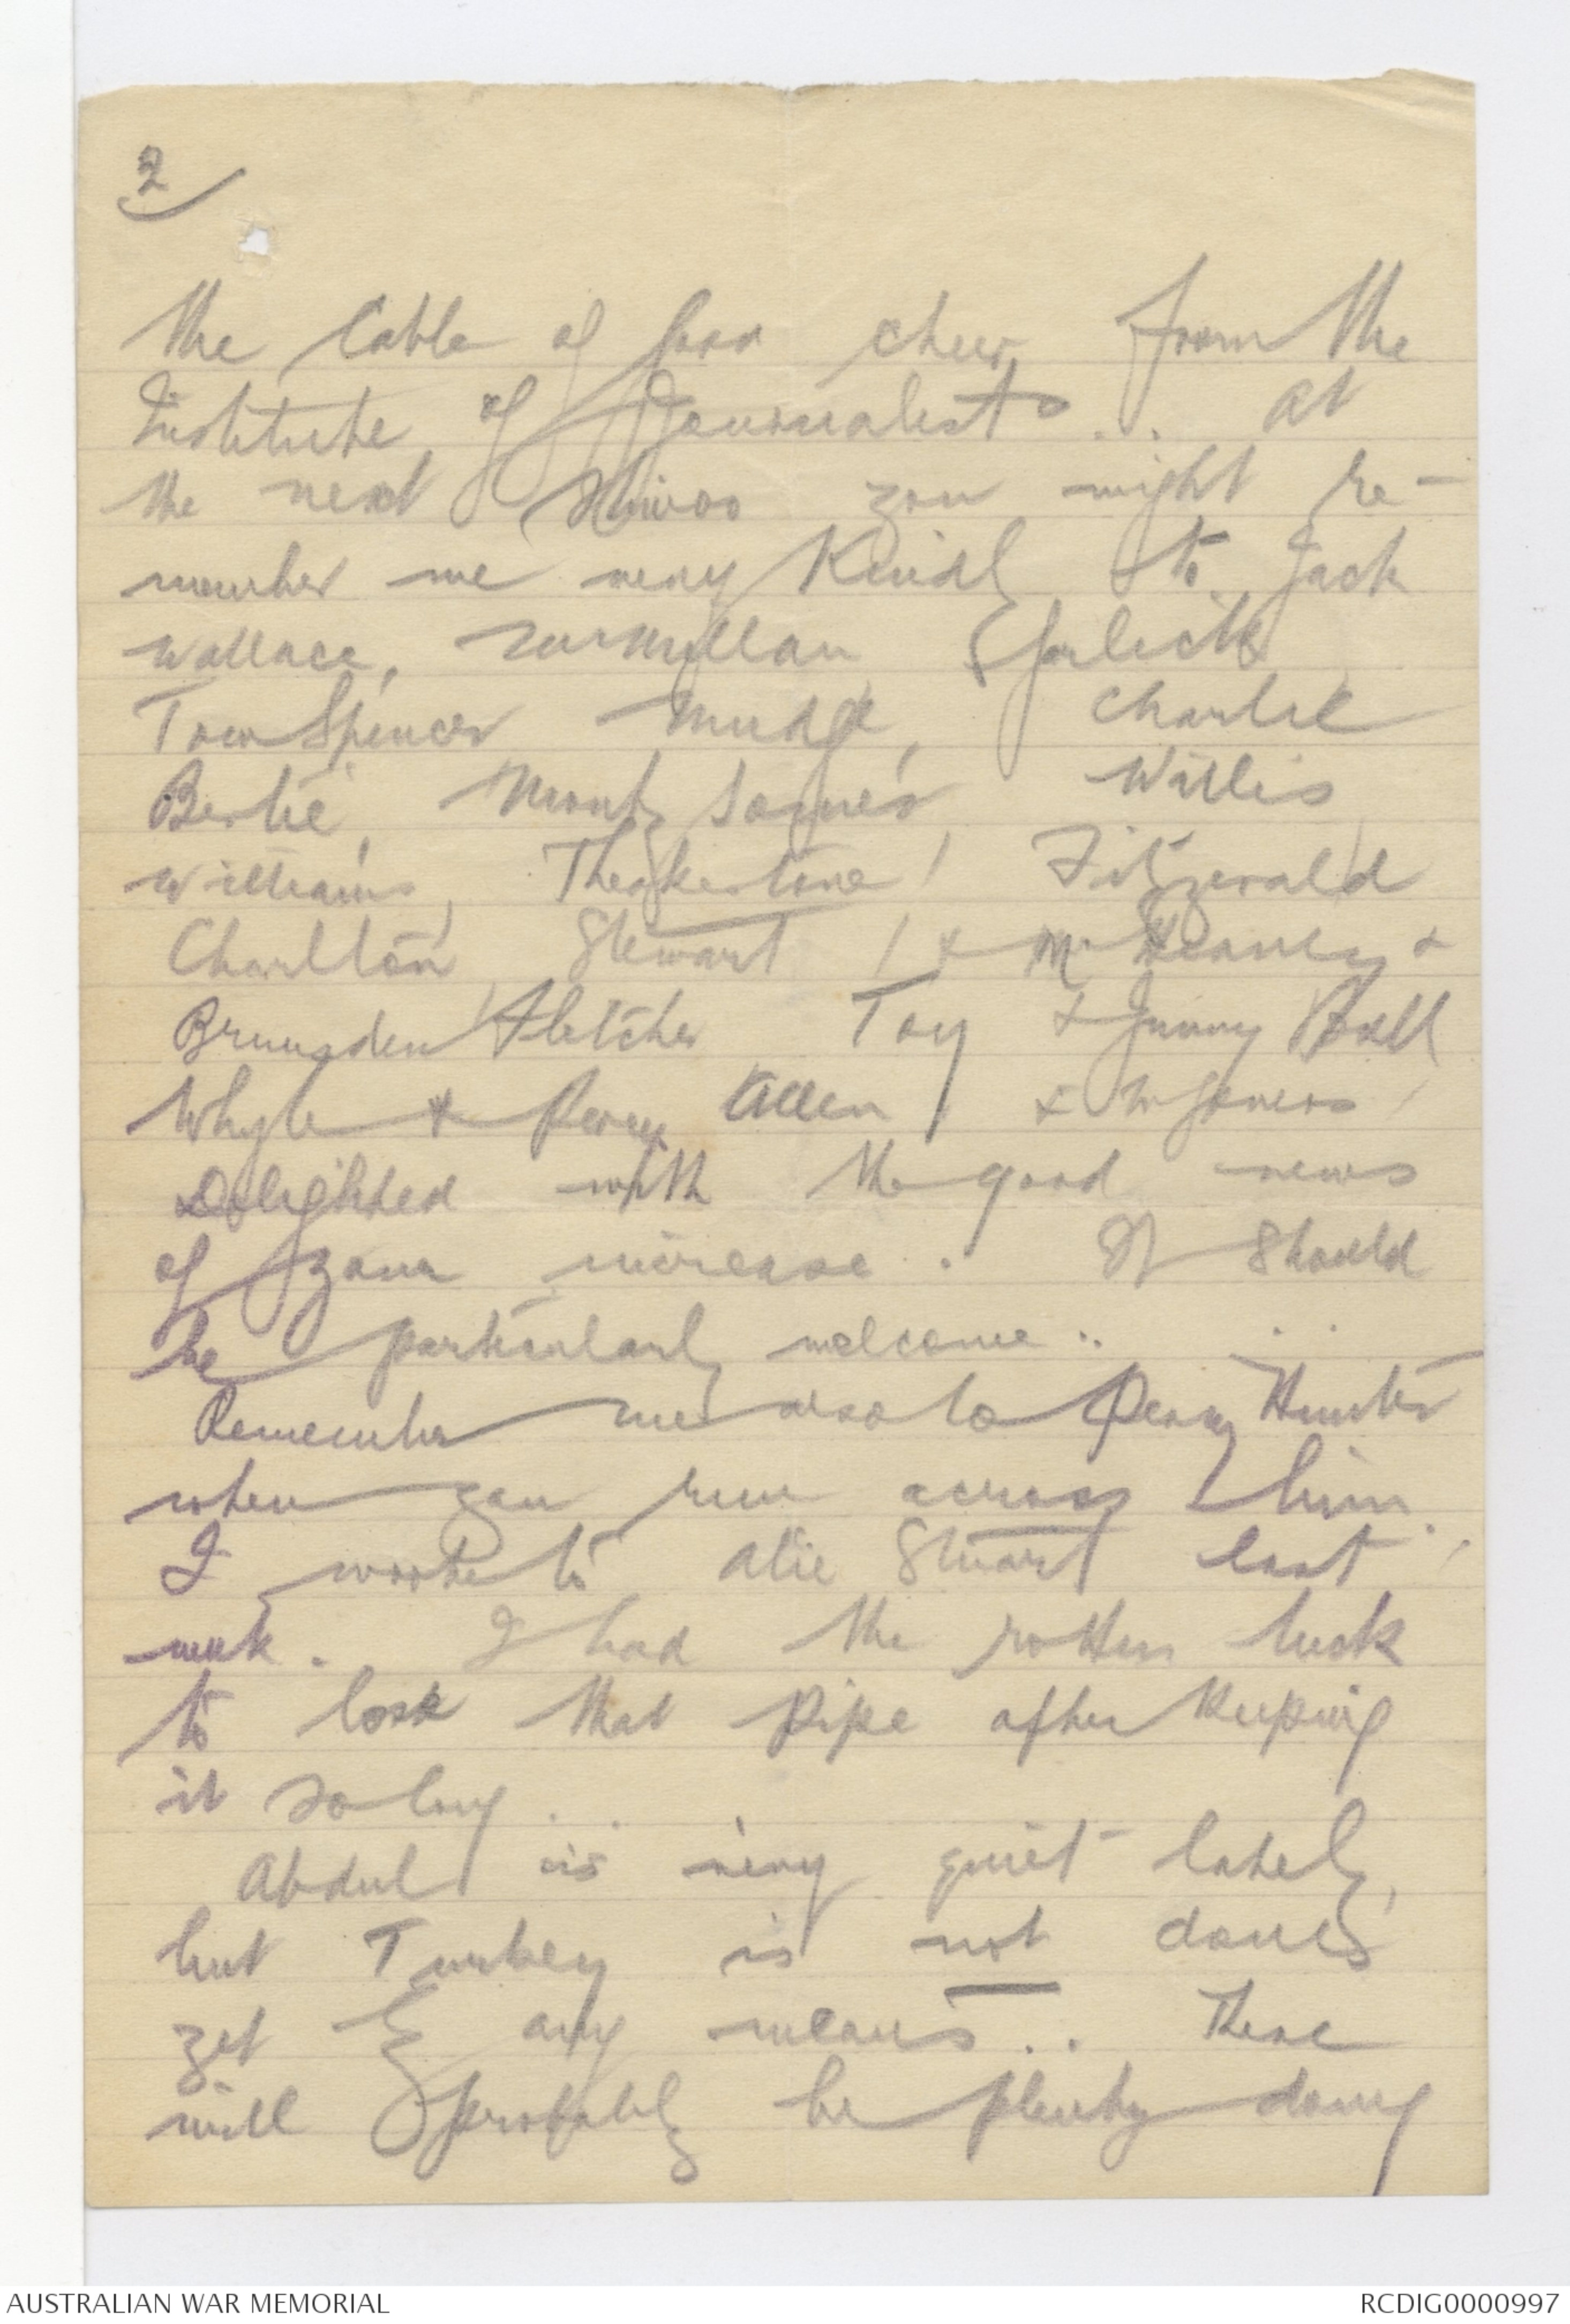 2
the Cable of good cheer from the
Institute of Journalists .. at
the next Shivoo you might re-
member me very kindly to Jack
Wallace, McMillan, Garlick
Tom Spencer Mudge, Charlie
Bertie, Monty Somer, Willis,
Williams, Theakestone, Fitzgerald
Charlton, Stewart, & Mr Heaney &
Brunsden Fletcher Toy & Jimmy Ball
Whyte & Percy Allen, &
Delighted with the good news
of your increase. It should
be particularly welcome ..
Remember me also to Percy Hunter
when you run across him.
I wrote to Alie Stuart last
week. I had the rotten luck
to lose that pipe after keeping
it so long ..
Abdul is very quiet lately,
but Turkey is not done
yet by any means .. There
will probably be plenty doing
AUSTRALIAN WAR MEMORIAL
RCDIG0000997